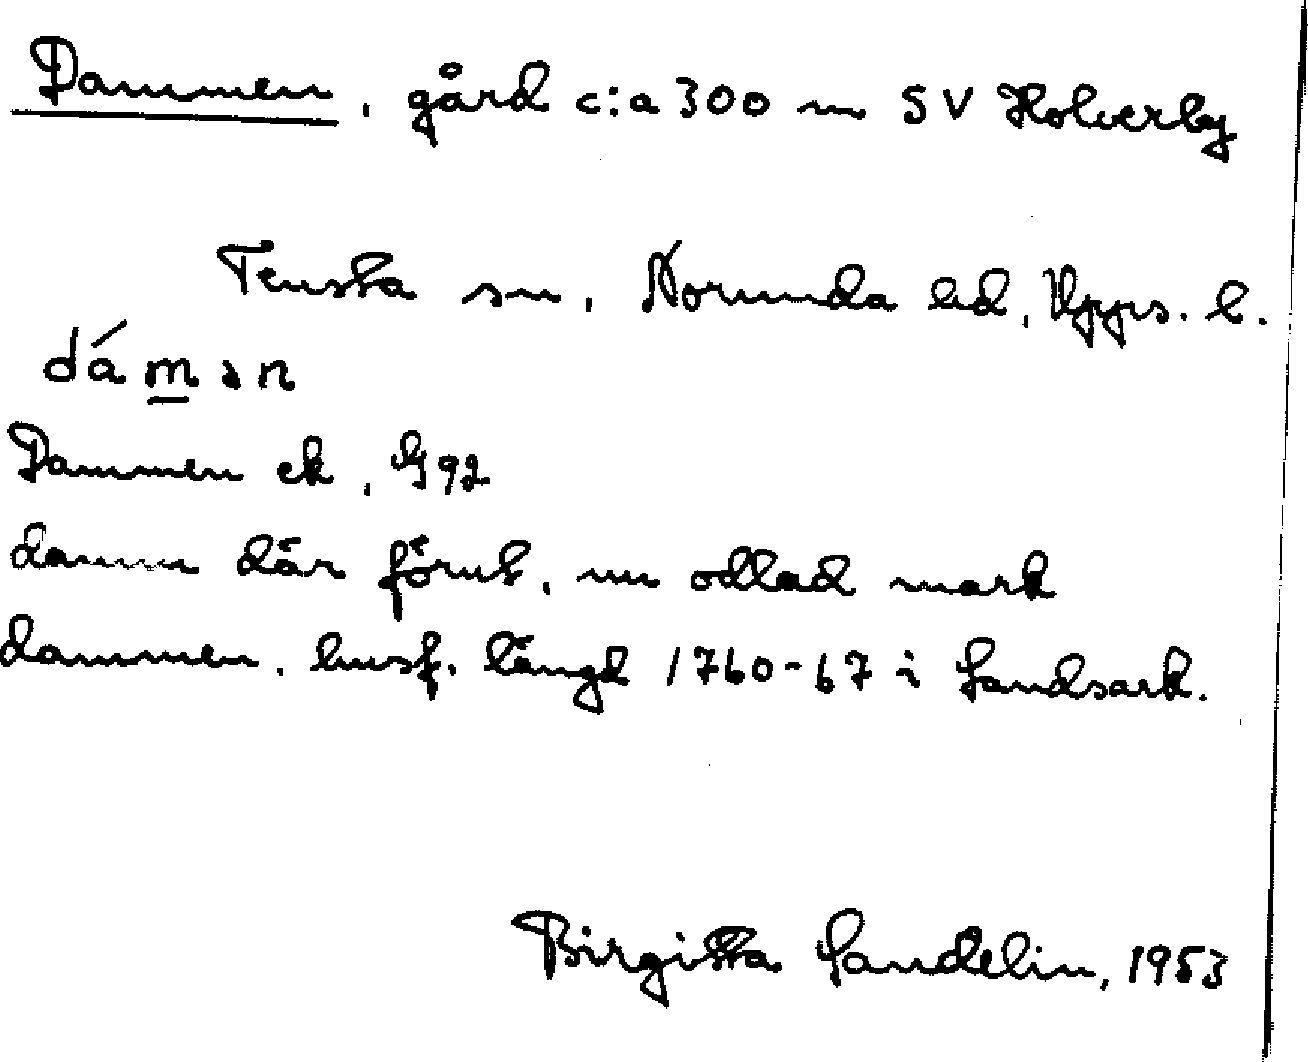 Dammen, gård c:a 300 m SV Holverby
Tensta sn, Norunda hd, Upps. l.
dám̲ən
Dammen ek, G 92
damm där förut, nu odlad mark
dammen, husf. längd 1760-67 i Landsark.
Birgitta Sandelin, 1953